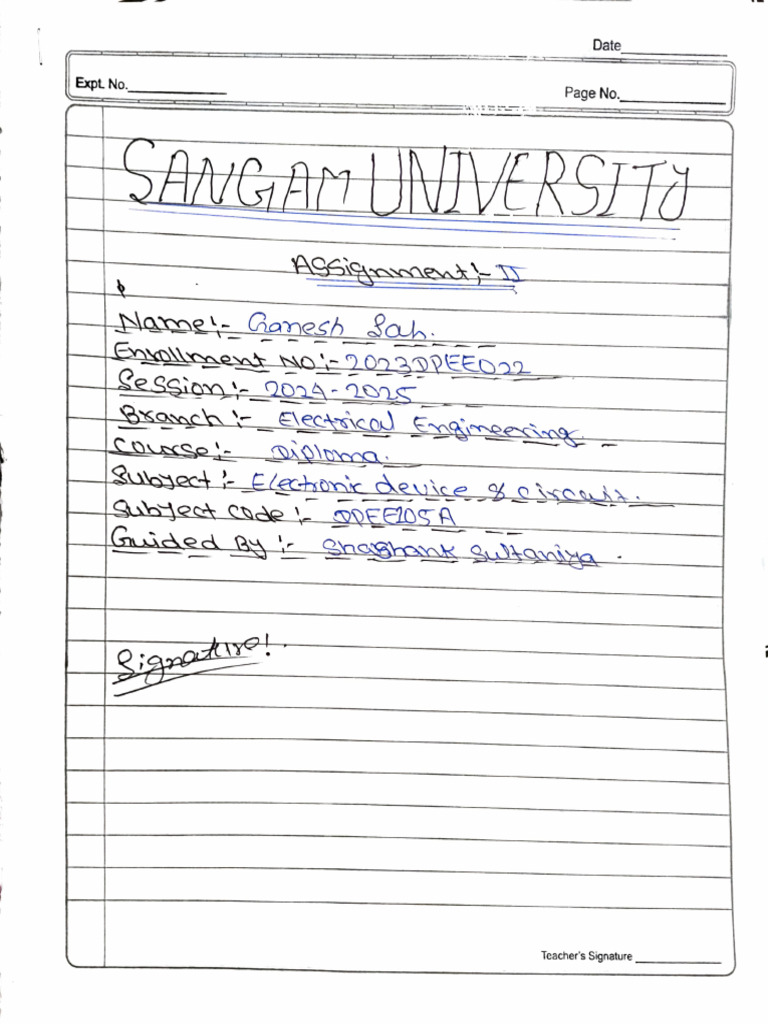 Date
Expt. No.
Page No.
SANGAM UNIVERSITY
Assignment:- II
Name:- Ganesh Sah.
Enrollment NO:- 2023DPEE022
Session:- 2024-2025
Branch:- Electrical Engineering
Course:- Diploma.
Subject:- Electronic device & circuit.
Subject code:- DPEE105A
Guided By:- Shashank Sultaniya.
Signature!.
Teacher's Signature